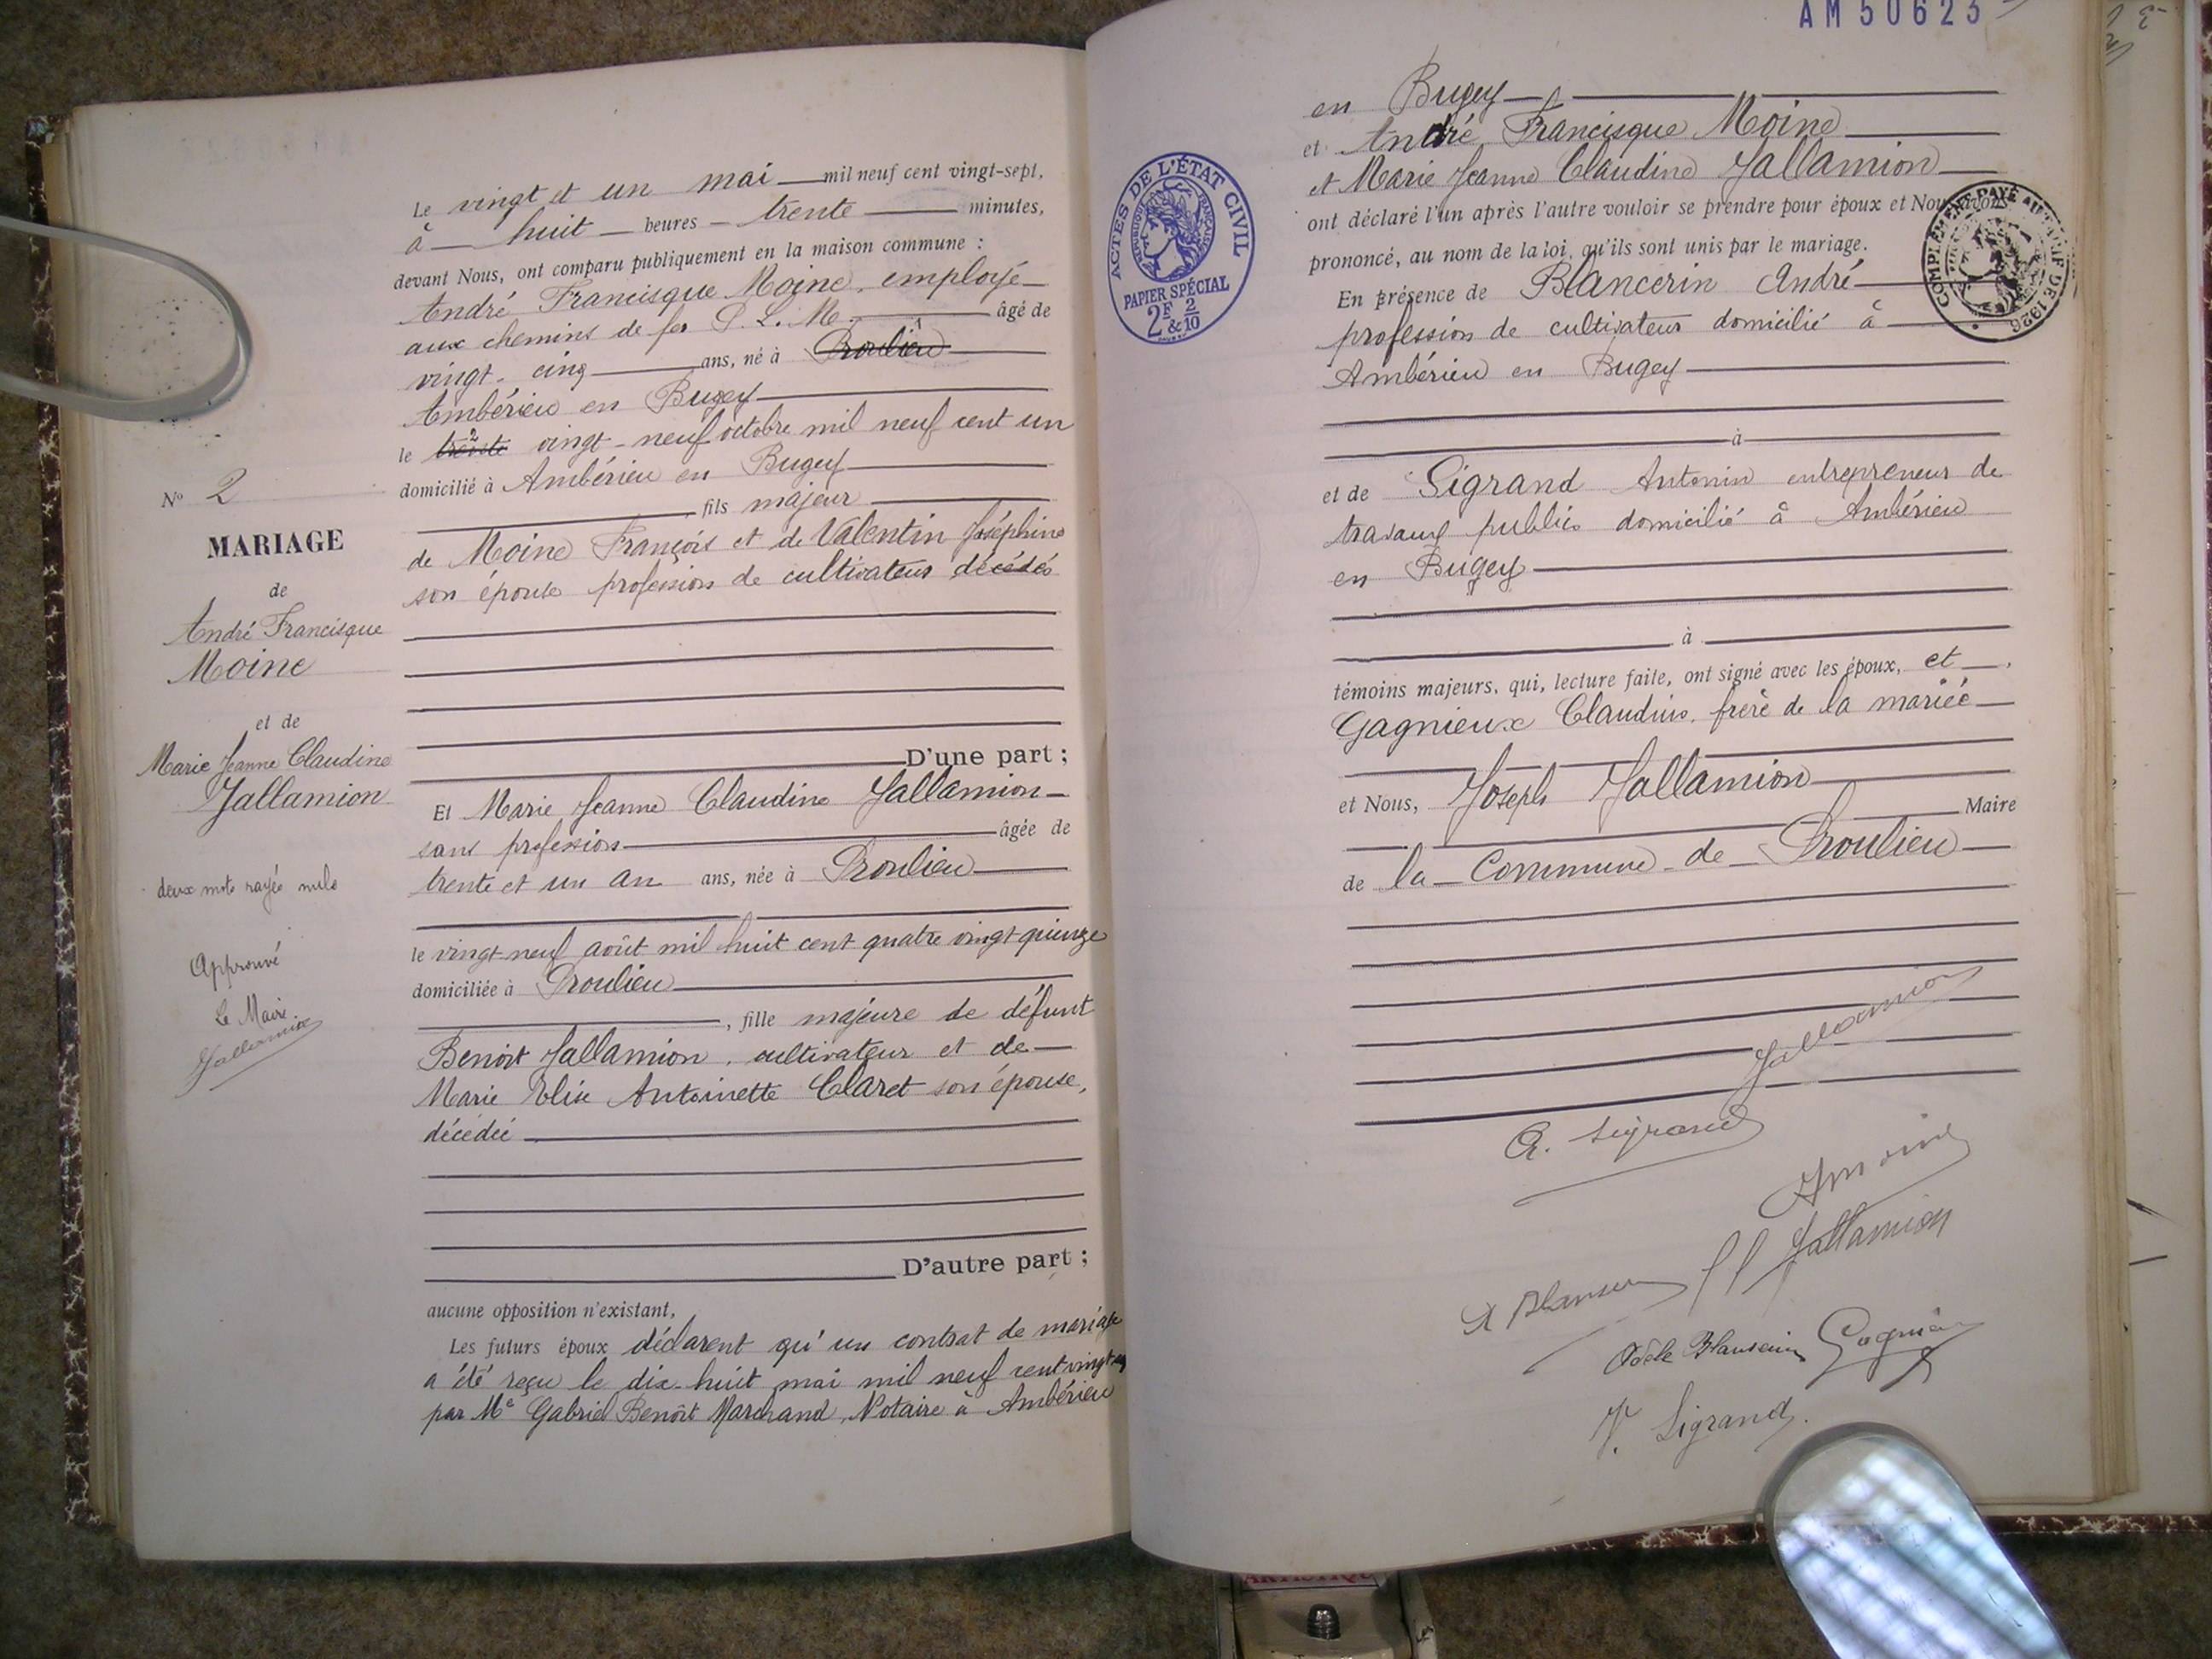 Le vingt et un mai mil neuf cent vingt-sept,
à huit heures trente minutes,
devant Nous, ont comparu publiquement en la maison commune :
André Francisque Moine, employé
aux chemins de fer P. L. M. âgé de
vingt-cinq ans, né à Proulieu
Ambérieu en Bugey
le vingt-neuf octobre mil neuf cent un
domicilié à Ambérieu en Bugey
fils majeur
de Moine François et de Valentin Joséphine
son épouse profession de cultivateurs décédés
D'une part ;
Et Marie Jeanne Claudine Jallamion
sans profession âgée de
trente et un an ans, née à Proulieu
le vingt-neuf août mil huit cent quatre vingt quinze
domiciliée à Proulieu
, fille majeure de défunt
Benoît Jallamion, cultivateur et de
Marie Elise Antoinette Claret son épouse,
décédée
D'autre part ;
aucune opposition n'existant,
Les futurs époux déclarent qu'un contrat de mariage
a été reçu le dix-huit mai mil neuf cent vingt
par Me Gabriel Benoît Marchand, Notaire à Ambérieu
No 2
MARIAGE
de
André Francisque
Moine
et de
Marie Jeanne Claudine
Jallamion
deux mots rayés nuls
Approuvé
Le Maire
Jallamion
AM50623
en Bugey
et André Francisque Moine
et Marie Jeanne Claudine Jallamion
ont déclaré l'un après l'autre vouloir se prendre pour époux et Nous avons
prononcé, au nom de la loi, qu'ils sont unis par le mariage.
En présence de Blancerin André
profession de cultivateur domicilié à
Ambérieu en Bugey
à
et de Sigrand Antonin entrepreneur de
travaux publics domicilié à Ambérieu
en Bugey
à
témoins majeurs, qui, lecture faite, ont signé avec les époux, et
Gagnieux Claudius, frère de la mariée
et Nous, Joseph Jallamion
Maire
de la Commune de Proulieu
Jallamion
A. Sigrand
Moine
Jallamion
A Blanserin
Adèle Blanserin
Gagnieux
V. Sigrand.
ACTES DE L'ÉTAT CIVIL
RÉPUBLIQUE FRANÇAISE
PAPIER SPÉCIAL
2F 2/10
&
COMPLÉMENT PAYÉ AU TARIF DE 1926